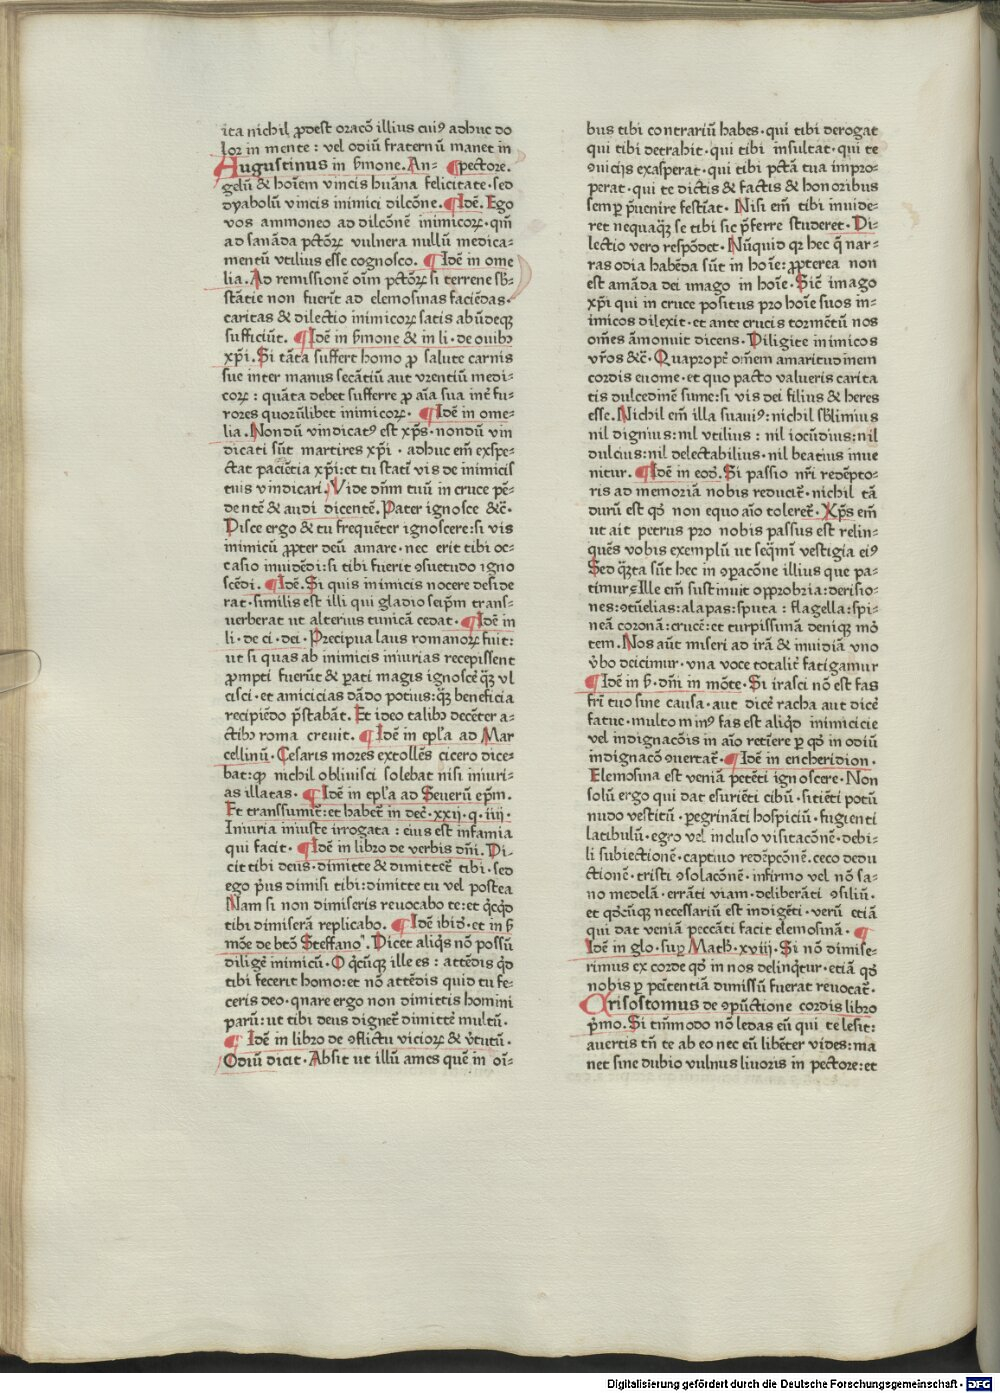 ita nichil ꝓdest oracõ illius cuiꝰ adhuc do
lor in mente : vel odiũ fraternũ manet in
Augustinus in ẜmone. An- ¶pectore.
gelũ & hoĩem vincis huãna felicitate·sed
dyabolũ vincis inimici dilcõne. ¶Idẽ. Ego
vos ammoneo ad dilcõnẽ inimicoꝝ·qm̃
ad sanãda pctõꝝ vulnera nullũ medica-
mentũ vtilius esse cognosco. ¶Idẽ in ome
lia. Ad remissionẽ oĩm pctõꝝ si terrene sb̃-
stãtie non fuerĩt ad elemosinas faciẽdas·
caritas & dilectio inimicoꝝ satis abũdeqꝫ
sufficiũt. ¶Idẽ in ẜmone & in li·de ouibꝫ
xp̃i. Si tãta suffert homo ꝓ salute carnis
sue inter manus secãtiũ aut vrentiũ medi-
coꝝ : quãta debet sufferre ꝓ aĩa sua int̃ fu-
rores quorũlibet inimicoꝝ· ¶Idẽ in ome-
lia. Nondũ vindicatꝰ est xp̃s·nondũ vin
dicati sũt martires xp̃i · adhuc em̃ exspe-
ctat paciẽtia xp̃i:et tu statĩ vis de inimicis
tuis vindicari. Vide dñm tuũ in cruce pẽ-
dentẽ & audi dicentẽ. Pater ignosce &c̃·
Disce ergo & tu frequẽter ignoscere:si vis
inimicũ ꝓpter deũ amare·nec erit tibi oc-
casio inuidẽdi:si tibi fuerit ꝯsuetudo igno
scẽdi. ¶Idẽ. Si quis inimicis nocere deside
rat·similis est illi qui gladio seip̃m trans-
uerberat ut alterius tunicã cedat· ¶Idẽ in
li·de ci·dei·Precipua laus romanoꝝ fuit:
ut si quas ab inimicis iniurias recepissent
ꝓmpti fuerũt & ꝑati magis ignoscẽ qꝫ vl
cisci·et amicicias dãdo potius:qꝫ beneficia
recipiẽdo p̃stabãt. Et ideo talibꝫ decẽter a-
ctibꝫ roma crevit. ¶Idẽ in ep̃la ad Mar
cellinũ. Cesaris mores extollẽs cicero dice-
bat:ꝙ nichil oblivisci solebat nisi iniuri-
as illatas. ¶Idẽ in ep̃la ad Seuerũ ep̃m.
Et transsumit̃:et habet̃ in dec̃·xxij·q·iiij·
Iniuria iniuste irrogata : eius est infamia
qui facit· ¶Idẽ in libro de verbis dñi. Di-
cit tibi deus·dimitte & dimittet̃ tibi·sed
ego p̃us dimisi tibi:dimitte tu vel postea
Nam si non dimiseris revocabo te:et q̃cq̃d
tibi dimiserã replicabo. ¶Idẽ ibid̃·et in ẜ
mõe de btõ Steffano. Dicet aliq̃s nõ possũ
diligẽ inimicũ· O q̃cũqꝫ ille es : attẽdis q̃d
tibi fecerit homo:et nõ attẽdis quid tu fe-
ceris deo·quare ergo non dimittis homini
parũ:ut tibi deus dignet̃ dimittẽ multũ·
¶Idẽ in libro de ꝯflictu vicioꝝ & v̾tutũ·
Odiũ dicit·Absit ut illũ ames quẽ in oĩ-
bus tibi contrariũ habes·qui tibi derogat
qui tibi detrahit·qui tibi insultat·qui te
ꝯuicijs exasperat·qui tibi pctã tua impro-
perat·qui te dictis & factis & honoribus
semꝑ p̃uenire festĩat·Nisi em̃ tibi inuide-
ret nequaqꝫ se tibi sic p̃ferre studeret·Di-
lectio vero respõdet·Nũquid qꝫ hec q̃ nar-
ras odia habẽda sũt in hoĩe: ꝓpterea non
est amãda dei imago in hoĩe·Sicẽ imago
xp̃i qui in cruce positus pro hoĩe suos in-
imicos dilexit·et ante crucis tormẽtũ nos
om̃es ãmonuit dicens·Diligite inimicos
vr̃os &c̃·Quapropẽ om̃em amaritudinem
cordis euome·et quo pacto valueris carita
tis dulcedinẽ sume:si vis dei filius & heres
esse. Nichil em̃ illa suauiꝰ: nichil sb̃limius
nil dignius:nil vtilius : nil iocũdius:nil
dulcius:nil delectabilius·nil beatius inue
nitur. ¶Idẽ in eod̃. Si passio nr̃i redẽpto-
ris ad memoriã nobis reducit̃·nichil tã
durũ est qd̃ non equo aĩo toleret̃·Xp̃s em̃
ut ait petrus pro nobis passus est relin-
quẽs vobis exemplũ ut seq̃mĩ vestigia eiꝰ
Sed q̃ta sũt hec in ꝯꝑacõne illius que pa-
timur?Ille em̃ sustinuit opprobria:derisio-
nes:ꝯtũelias:alapas:sputa : flagella:spi-
neã coronã:crucẽ:et turpissimã deniqꝫ mõ
tem.Nos aũt miseri ad irã & inuidiã vno
v̾bo deicimur·vna voce totalic̃ fatigamur
¶Idẽ in ẜ·dñi in mõte·Si irasci nõ est fas
fr̃i tuo sine causa·aut dicẽ racha aut dicẽ
fatue·multo minꝰ fas est aliq̃d inimicicie
vel indignacõis in aĩo retiẽre ꝑ qd̃ in odiũ
indignacõ ꝯuertat̃·¶Idẽ in encheridion·
Elemosina est veniã petẽti ignoscere·Non
solũ ergo qui dat esuriẽti cibũ·sitiẽti potũ
nudo vestitũ·peregrinãti hospiciũ·fugienti
latibulũ·egro vel incluso visitacõnẽ·debi-
li subiectionẽ·captiuo redẽpcõnẽ.ceco dedu
ctionẽ·tristi ꝯsolacõnẽ·infirmo vel nõ sa-
no medelã·errãti viam·deliberãti ꝯsiliũ·
et qd̃cũqꝫ necessariũ est indigẽti·verũ etiã
qui dat veniã peccãti facit elemosinã· ¶
Idẽ in glo·suꝑ Math·xviij·Si nõ dimise-
rimus ex corde qd̃ in nos delinq̃tur·etiã qd̃
nobis ꝑ penitentiã dimissũ fuerat reuocat̃·
Crisostomus de ꝯpũctione cordis libro
p̃mo.Si tm̃modo nõ ledas eũ qui te lesit:
auertis tñ te ab eo nec eũ libẽter vides:ma
net sine dubio vulnus liuoris in pectore:et
Digitalisierung gefördert durch die Deutsche Forschungsgemeinschaft - DFG